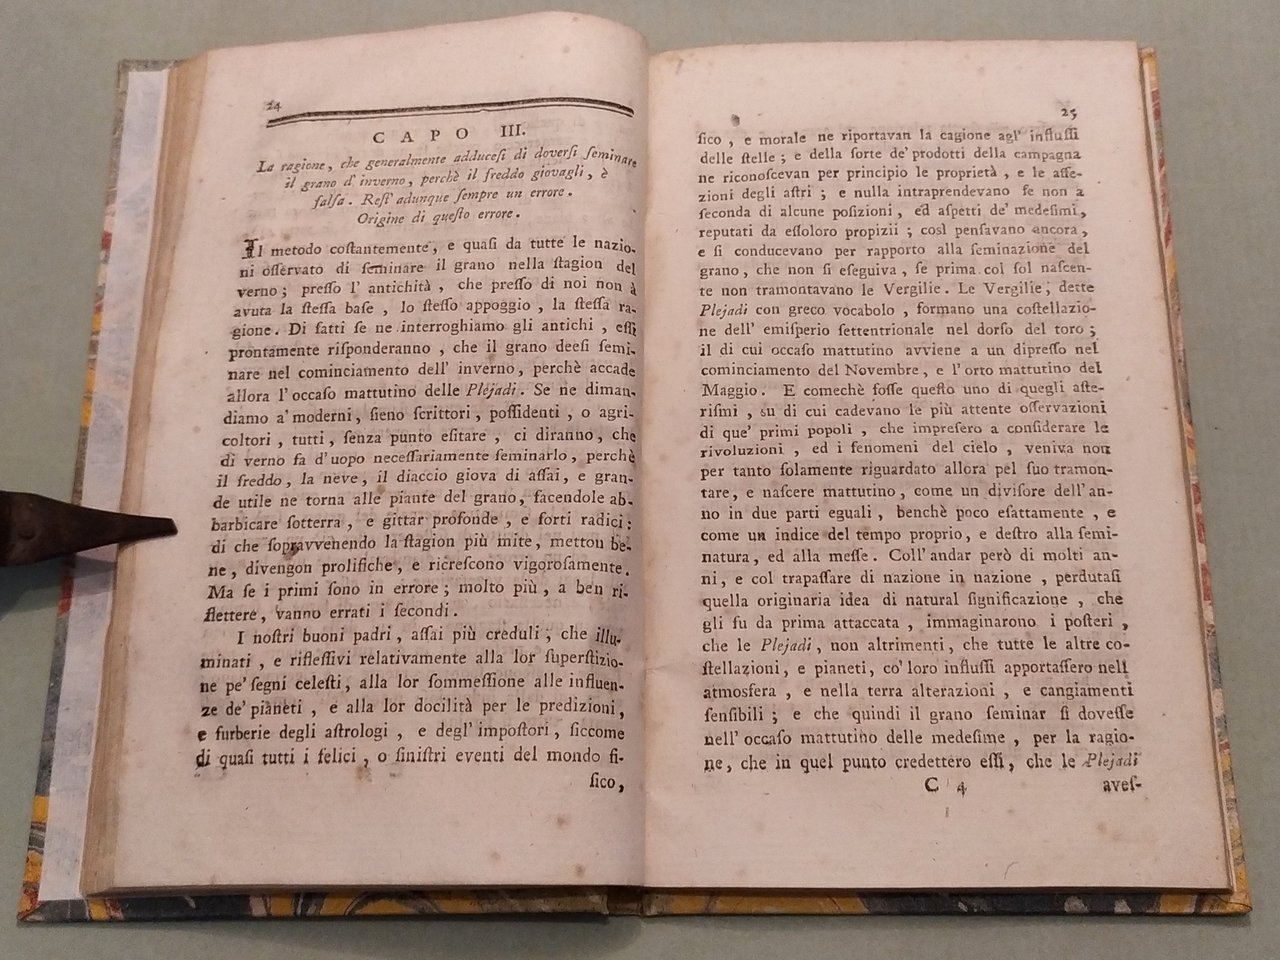 24
CAPO III.
La ragione, che generalmente adducesi di doversi seminare
il grano d' inverno, perchè il freddo giovagli, è
falsa. Resi' adunque sempre un errore.
Origine di questo errore.
Il metodo costantemente, e quasi da tutte le nazio-
ni osservato di seminare il grano nella stagion del
verno; presso l' antichità, che presso di noi non à
avuta la stessa base, lo stesso appoggio, la stessa ra-
gione. Di fatti se ne interroghiamo gli antichi, essi
prontamente risponderanno, che il grano deesi semi-
nare nel cominciamento dell' inverno, perchè accade
allora l'occaso mattutino delle Plejadi. Se ne diman-
diamo a' moderni, sieno scrittori, possidenti, o agri-
coltori, tutti, senza punto esitare, ci diranno, che
di verno fa d'uopo necessariamente seminarlo, perchè
il freddo, la neve, il diaccio giova di assai, e gran-
de utile ne torna alle piante del grano, facendole ab-
barbicare sotterra, e gittar profonde, e forti radici:
di che sopravvenendo la stagion più mite, metton be-
ne, divengon prolifiche, e ricrescono vigorosamente.
Ma se i primi sono in errore; molto più, a ben ri-
flettere, vanno errati i secondi.
I nostri buoni padri, assai più creduli, che illu-
minati, e riflessivi relativamente alla lor superstizio-
ne pe' segni celesti, alla lor sommessione alle influen-
ze de' pianeti, e alla lor docilità per le predizioni,
e furberie degli astrologi, e degl' impostori, siccome
di quasi tutti i felici, o sinistri eventi del mondo fi-
sico,
25
sico, e morale ne riportavan la cagione agl' influssi
delle stelle; e della sorte de' prodotti della campagna
ne riconoscevan per principio le proprietà, e le affe-
zioni degli astri; e nulla intraprendevano se non a
seconda di alcune posizioni, ed aspetti de' medesimi,
reputati da essoloro propizii; così pensavano ancora,
e si conducevano per rapporto alla seminazione del
grano, che non si eseguiva, se prima col sol nascen-
te non tramontavano le Vergilie. Le Vergilie, dette
Plejadi con greco vocabolo, formano una costellazio-
ne dell' emisperio settentrionale nel dorso del toro;
il di cui occaso mattutino avviene a un dipresso nel
cominciamento del Novembre, e l'orto mattutino del
Maggio. E comechè fosse questo uno di quegli aste-
rismi, su di cui cadevano le più attente osservazioni
di que' primi popoli, che impresero a considerare le
rivoluzioni, ed i fenomeni del cielo, veniva non
per tanto solamente riguardato allora pel suo tramon-
tare, e nascere mattutino, come un divisore dell'an-
no in due parti eguali, benchè poco esattamente, e
come un indice del tempo proprio, e destro alla semi-
natura, ed alla messe. Coll'andar però di molti an-
ni, e col trapassare di nazione in nazione, perdutasi
quella originaria idea di natural significazione, che
gli fu da prima attaccata, immaginarono i posteri,
che le Plejadi, non altrimenti, che tutte le altre co-
stellazioni, e pianeti, co' loro influssi apportassero nell
atmosfera, e nella terra alterazioni, e cangiamenti
sensibili; e che quindi il grano seminar si dovesse
nell' occaso mattutino delle medesime, per la ragio-
ne, che in quel punto credettero essi, che le Plejadi
C 4
aves-